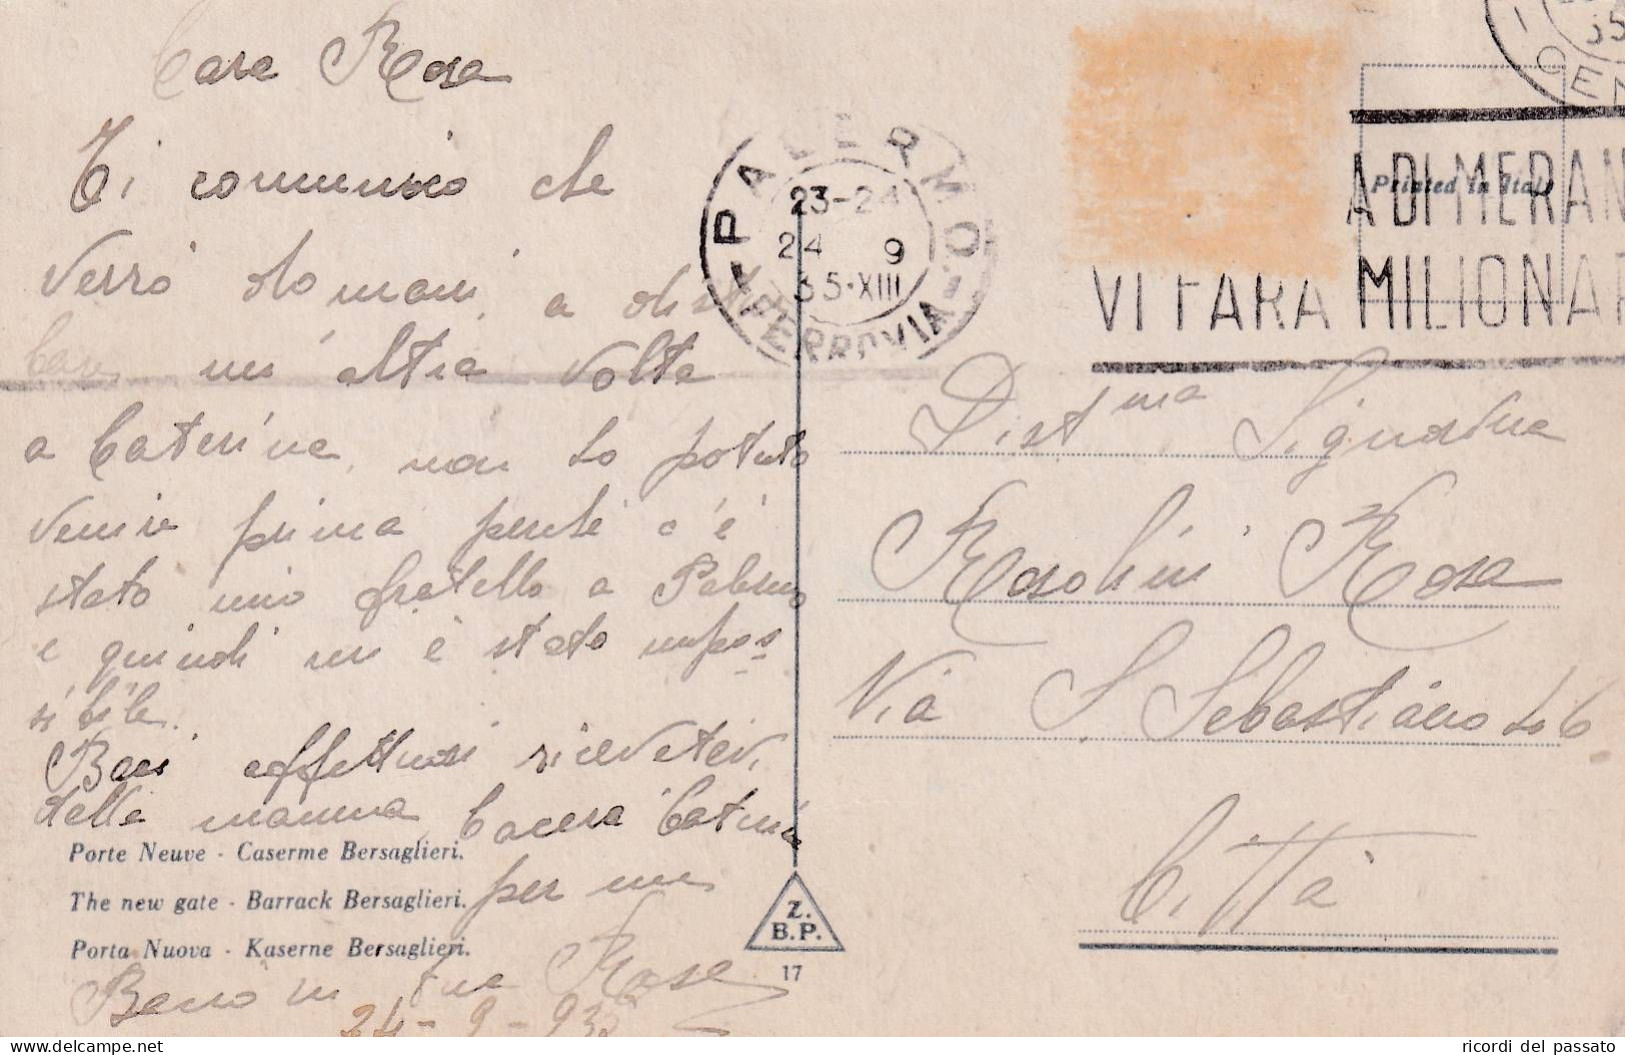 Cara Rosa
Ti comunico che
verrò domani, a
un'altra volta
a Caterina, non ho potuto
venire prima perché c'è
stato mio fratello a Palermo
e quindi mi è stato impos
sibile.
Baci affettuosi ricevetevi
della mamma,
per
24-9-935
PALERMO
23-24
24 9
35·XIII
FERROVIA
35
CEN
Printed in Italy
A DI MERAN
VI FARA MILIONAR
Dist ma Signorina
Rosolini Rosa
Via S. Sebastiano No 6
Città
Porte Neuve - Caserme Bersaglieri.
The new gate - Barrack Bersaglieri.
Porta Nuova - Kaserne Bersaglieri.
Z.
B.P.
17
delcampe.net
ricordi del passato